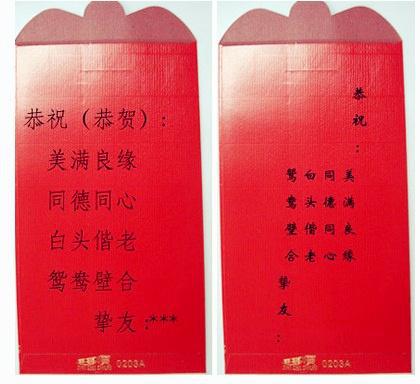 恭祝（恭贺）:
美满良缘
同德同心
白头偕老
鸳鸯壁合
挚友:***
0203A
恭祝:
美满良缘
同德同心
白头偕老
鸳鸯壁合
挚友:
0203A